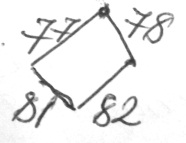 77 78
81 82